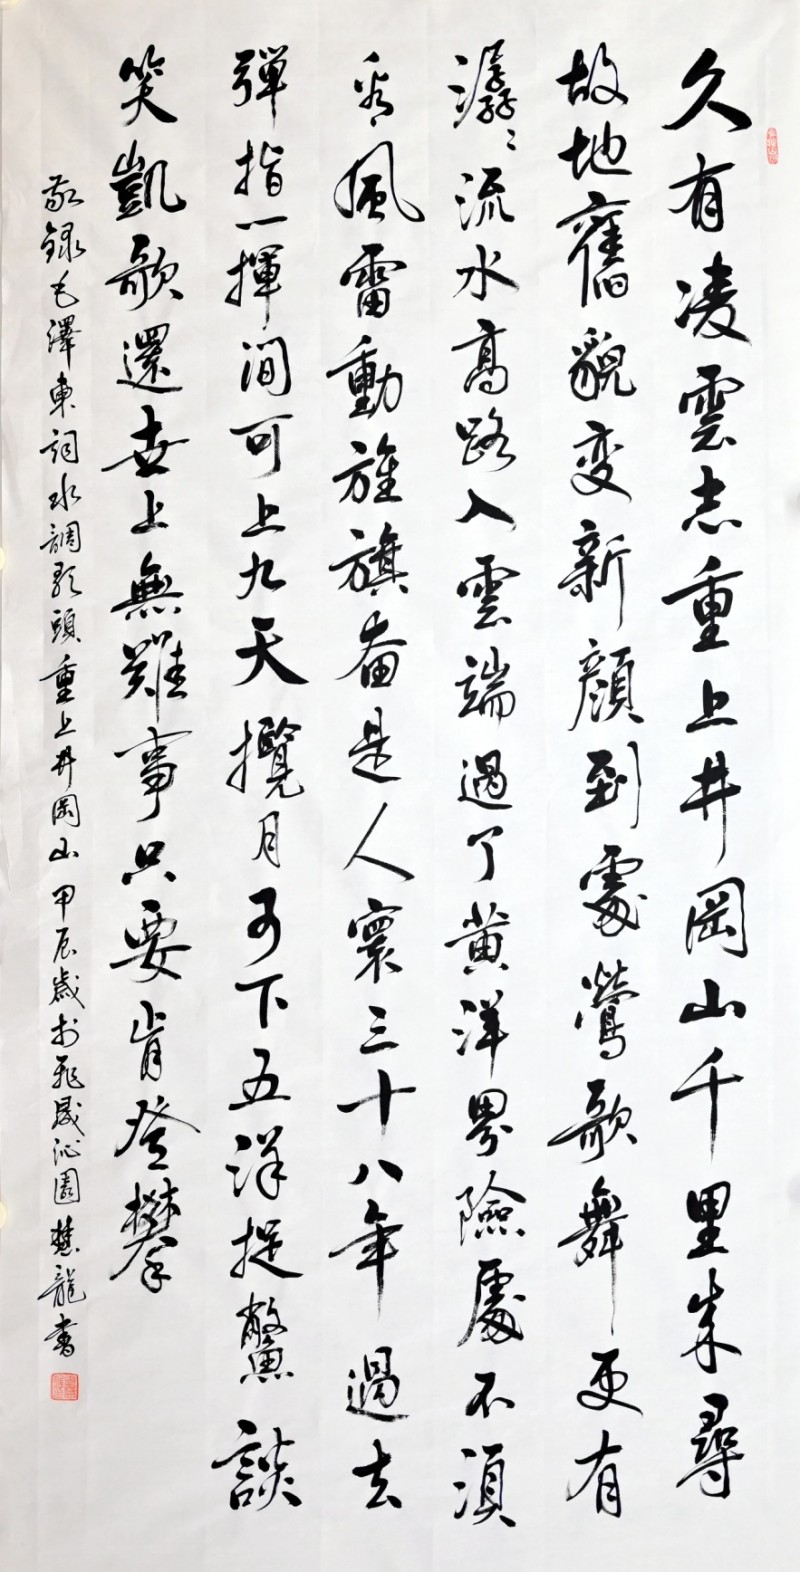 久有凌雲志重上井岡山千里来尋
故地舊貌变新顔到處鶯歌舞更有
潺〻流水高路入雲端過了黄洋界險處不須
看風雷動旌旗奋是人寰三十八年過去
彈指一揮间可上九天攬月可下五洋捉鱉談
笑凱歌還世上無難事只要肯登攀
敬錄毛澤東詞水調歌頭重上井岡山甲辰歲於飛晟沁園慧龍書